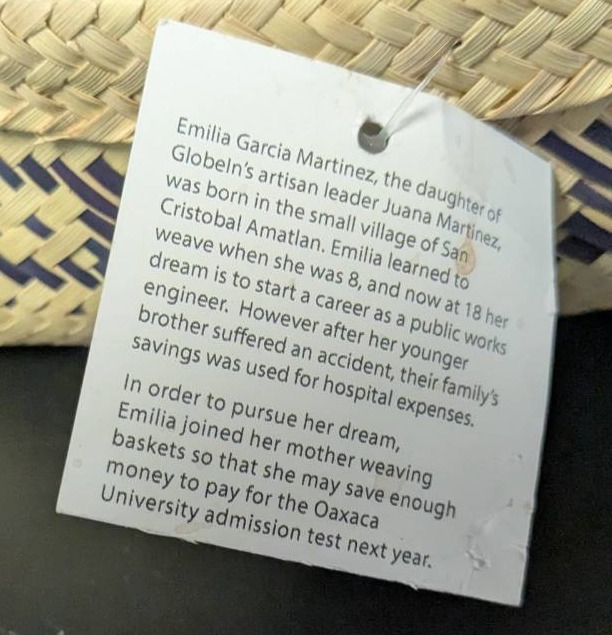 Emilia Garcia Martinez, the daughter of
GlobeIn's artisan leader Juana Martinez,
was born in the small village of San
Cristobal Amatlan. Emilia learned to
weave when she was 8, and now at 18 her
dream is to start a career as a public works
engineer. However after her younger
brother suffered an accident, their family's
savings was used for hospital expenses.
In order to pursue her dream,
Emilia joined her mother weaving
baskets so that she may save enough
money to pay for the Oaxaca
University admission test next year.